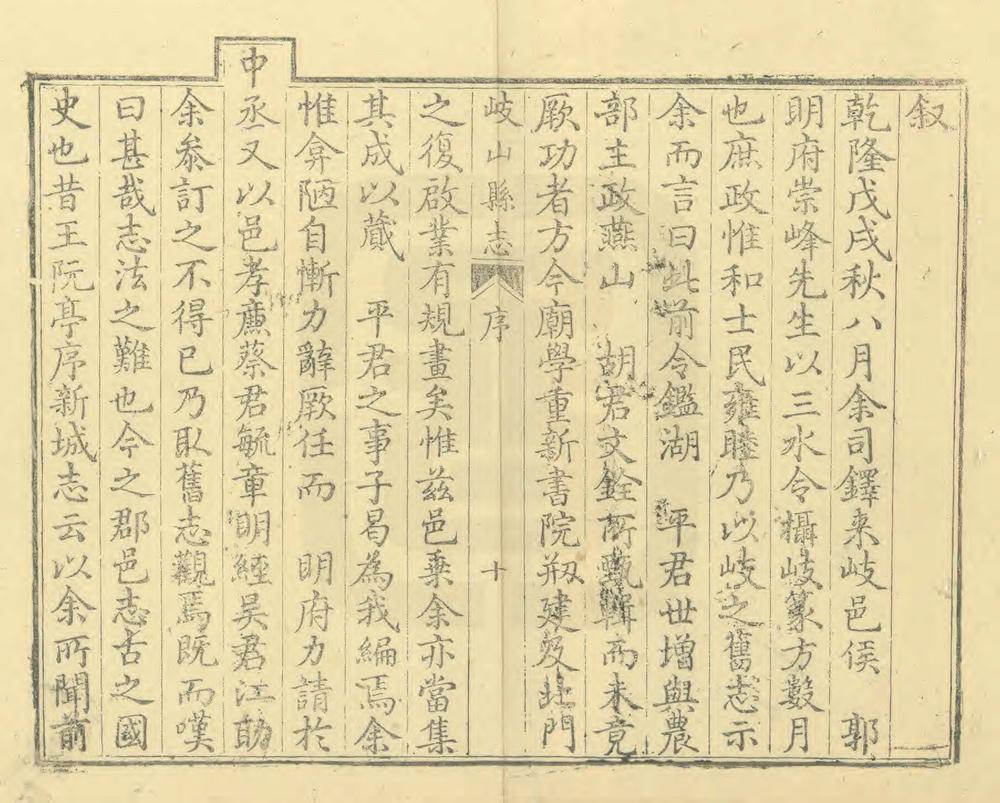 叙
乾隆戊戌秋八月余司鐸来岐邑侯　郭
明府崇峰先生以三水令攝岐篆方數月
也庶政惟和士民雍睦乃以岐之舊志示
余而言曰此前令鑑湖　平君世增與農
部主政燕山　胡君文銓所甄輯而未竟
厥功者方今廟學重新書院剏建及北門
岐山縣志　序　十
之復啟業有規畫矣惟兹邑乗余亦當集
其成以蕆　平君之事子曷為我編焉余
惟弇陋自慚力辭厥任而　明府力請於
中丞又以邑孝廉蔡君毓章明經吴君江助
余叅訂之不得已乃取舊志觀焉既而嘆
曰甚哉志法之難也今之郡邑志古之國
史也昔王阮亭序新城志云以余所聞前